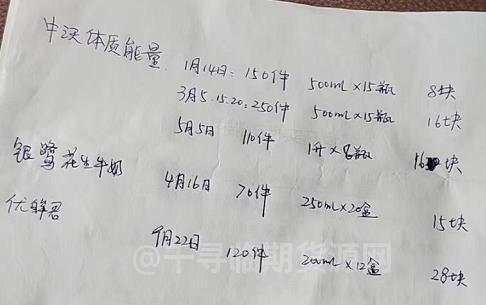 中沃体质能量
1月14日：150件 500mL×15瓶 8块
3月5.15.20：250件 500mL×15瓶 16块
5月5日 110件 1升× 瓶 16块
银鹭花生牛奶
4月16日 70件 250mL×20盒 15块
优酸君
9月22日 120件 200mL×12盒 28块
@千寻临期货源网